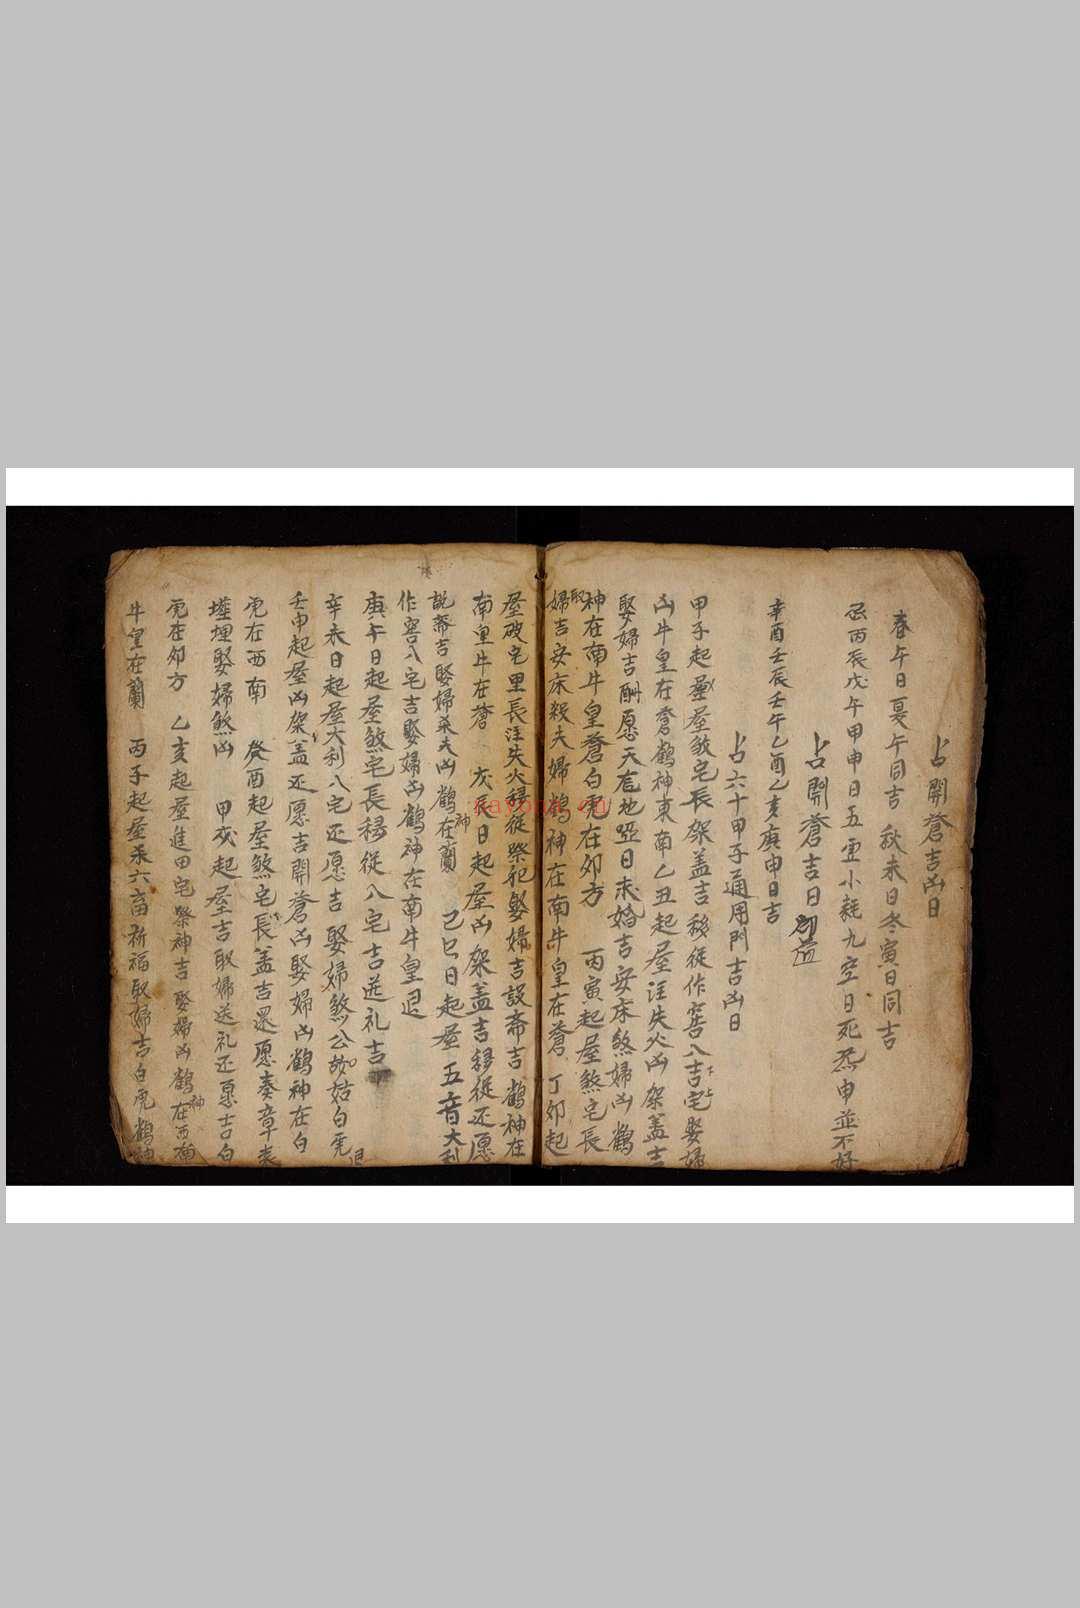 占開蒼吉凶日
春午日夏午同吉 秋未日冬寅日同吉
忌丙辰戊午甲申日五虛小耗九空日死炁申並不好
占開蒼吉日
辛酉壬辰壬午乙酉乙亥庚申日吉
占六十甲子通用門吉凶日
甲子起屋煞宅長架盖吉移徒作窖八吉宅娶婦
凶牛皇在蒼鶴神東南乙丑起屋注失火凶架盖吉
娶婦吉酬愿天地啞日求婚吉安床煞婦凶鶴
神在南牛皇蒼白虎在卯方 丙寅起屋煞宅長
取婦吉安床殺夫婦鶴神在南牛皇在蒼丁卯起
屋破宅里長注失火移徒祭祀娶婦吉設斋吉鶴神在
南皇牛在蒼 戊辰日起屋凶架盖吉移徒还愿
説斋吉娶婦杀夫凶鶴神在蘭 己巳日起屋五音大利
作窖八宅吉娶婦凶鶴神在南牛皇
庚午日起屋煞宅長移徒八宅吉送礼吉
辛未日起屋大利八宅还愿吉娶婦煞公姑白虎
壬申起屋凶架盖还愿吉開蒼凶娶婦凶鶴神在白
虎在西南 癸酉起屋煞宅長盖吉还愿奏章表
埋娶婦煞凶 甲戌起屋吉取婦送礼还愿吉白
虎在卯方 乙亥起屋進田宅祭神吉娶婦凶鶴神在西南
牛皇在蘭 丙子起屋杀六畜祈福取婦吉白虎鶴神
nayona.cn